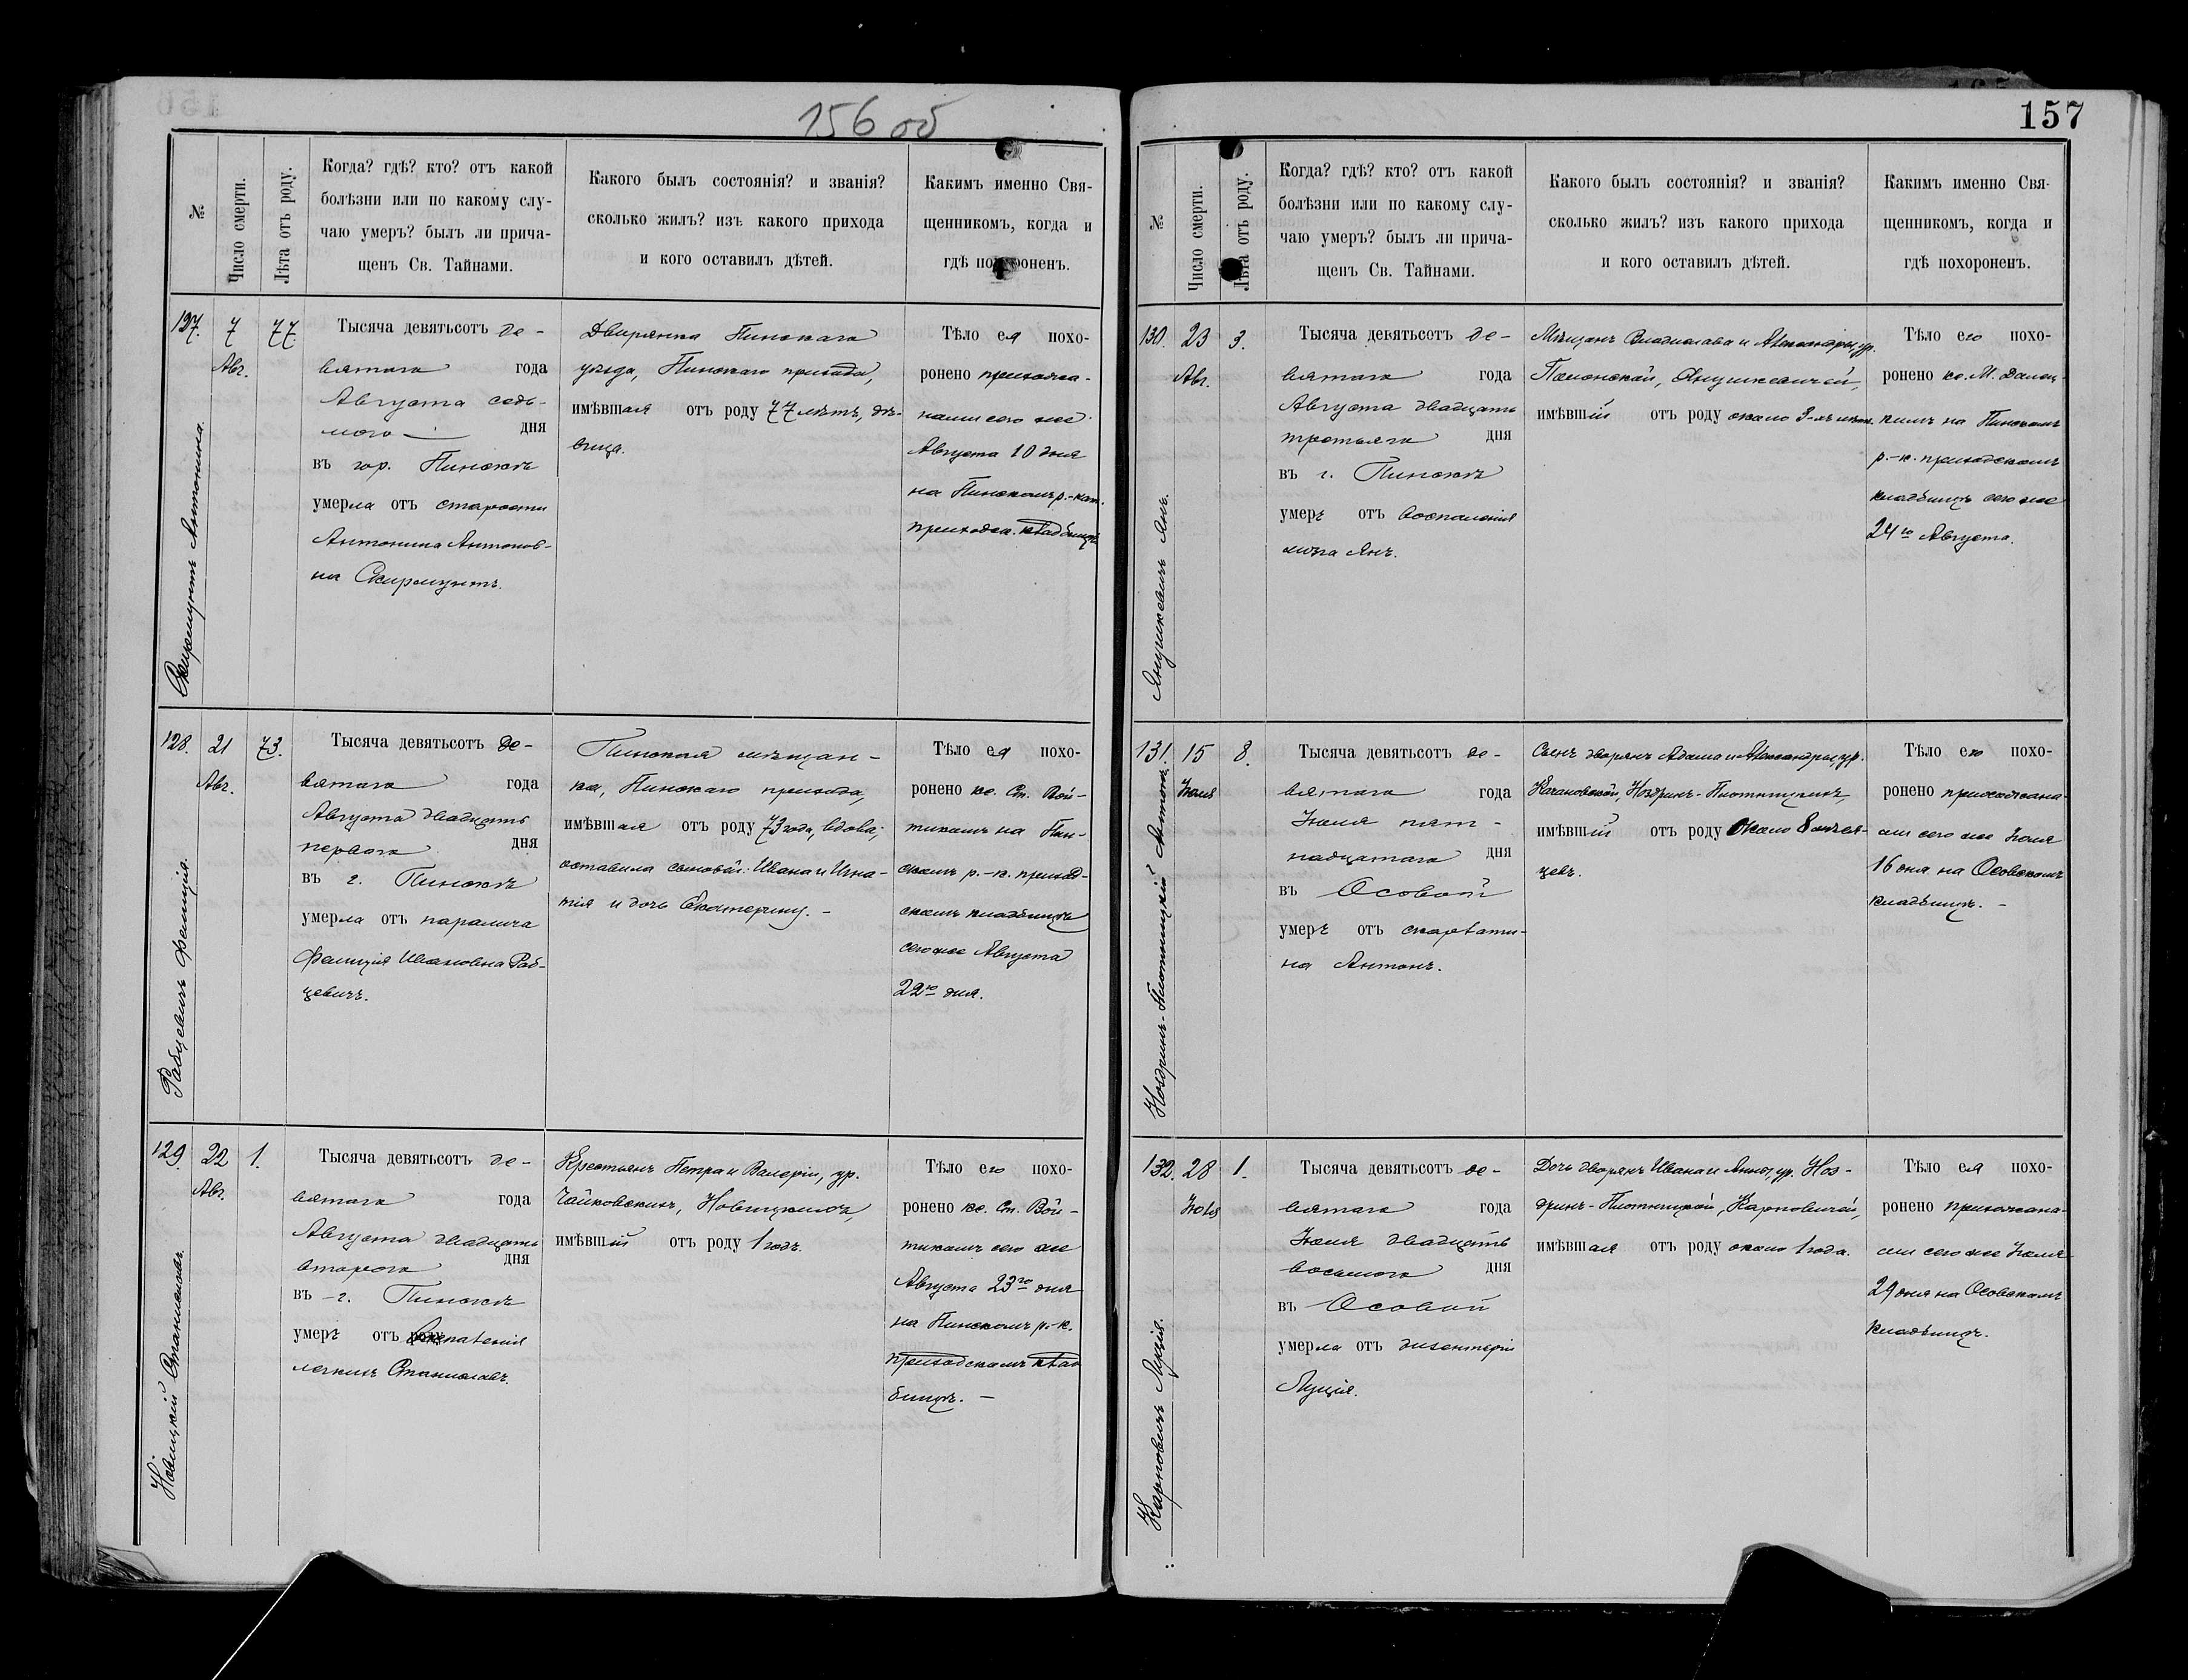 156 об
№
Число смерти.
Лѣта отъ роду.
Когда? гдѣ? кто? отъ какой
болѣзни или по какому слу-
чаю умеръ? былъ ли прича-
щенъ Св. Тайнами.
Какого былъ состоянія? и званія?
сколько жилъ? изъ какого прихода
и кого оставилъ дѣтей.
Какимъ именно Свя-
щенникомъ, когда и
гдѣ похороненъ.
127.
Скирмунтъ Антонина.
7
Авг.
77
Тысяча девятьсотъ де-
вятаго года
Августа седь-
мого дня
въ гор. Пинскѣ
умерла отъ старости
Антонина Антонов-
на Скирмунтъ.
Дворянка Пинскаго
уѣзда, Пинскаго прихода,
имѣвшая отъ роду 77 лѣтъ, дѣ-
вица.
Тѣло ея похо-
ронено прихожа-
нами сего же
Августа 10 дня
на Пинскомъ р.-кат.
приходск. кладбищѣ
128.
Рабцевичъ Фелиція.
21
Авг.
73.
Тысяча девятьсотъ де-
вятаго года
Августа двадцать
перваго дня
въ г. Пинскѣ
умерла отъ паралича
Фелиція Ивановна Раб-
цевичъ.
Пинская мѣщан-
ка, Пинскаго прихода,
имѣвшая отъ роду 73 года, вдова;
оставила сыновей: Ивана и Игна-
тія и дочь Екатерину. -
Тѣло ея похо-
ронено кс. Ст. Вой-
тикомъ на Пин-
скомъ р.-к. приход-
скомъ кладбищѣ
сего же Августа
22го дня.
129
Новицкій Станиславъ.
22
Авг.
1.
Тысяча девятьсотъ де-
вятаго года
Августа двадцать
втораго дня
въ г. Пинскѣ
умеръ отъ воспаленія
легкихъ Станиславъ.
Крестьянъ Петра и Валеріи, ур.
Чайковскихъ, Новицкихъ,
имѣвшій отъ роду 1 годъ.
Тѣло его похо-
ронено кс. Ст. Вой-
тикомъ сего же
Августа 23го дня
на Пинскомъ р.-к.
приходскомъ клад
бищѣ. -
157
№
Число смерти.
Лѣта отъ роду.
Когда? гдѣ? кто? отъ какой
болѣзни или по какому слу-
чаю умеръ? былъ ли прича-
щенъ Св. Тайнами.
Какого былъ состоянія? и званія?
сколько жилъ? изъ какого прихода
и кого оставилъ дѣтей.
Какимъ именно Свя-
щенникомъ, когда и
гдѣ похороненъ.
130.
Янушкевичъ Янъ.
23
Авг.
3.
Тысяча девятьсотъ де-
вятаго года
Августа двадцать
третьяго дня
въ г. Пинскѣ
умеръ отъ воспаленія
мозга Янъ.
Мѣщанъ Владислава и Александры, ур.
Янушкевичей,
имѣвшій отъ роду около 3-хъ лѣтъ.
Тѣло его похо-
ронено кс. М.
на Пинскомъ
р.-к. приходскомъ
кладбищѣ сего же
24го Августа.
131.
Ноздринъ-Плотницкій Антонъ.
15
Іюля
8.
Тысяча девятьсотъ де-
вятаго года
Іюля пят-
надцатаго дня
въ Особой
умеръ отъ скарлати-
на Антонъ.
Сынъ дворянъ Адама и Александры, ур.
Качановской, Ноздринъ-Плотницкихъ,
имѣвшій отъ роду около 8 мѣся-
цевъ.
Тѣло его похо-
ронено прихожана-
ми сего же Іюля
16 дня на Осовскомъ
кладбищѣ. -
132.
Карповичъ Луція.
28
Іюля
1.
Тысяча девятьсотъ де-
вятаго года
Іюля двадцать
восьмого дня
въ Особой
умерла отъ дизентеріи
Луція.
Дочь дворянъ Ивана и Анны, ур. Ноз-
дринъ-Плотницкой, Карповичей,
имѣвшая отъ роду около 1 года.
Тѣло ея похо-
ронено прихожана-
ми сего же Іюля
29 дня на Осовскомъ
кладбищѣ.